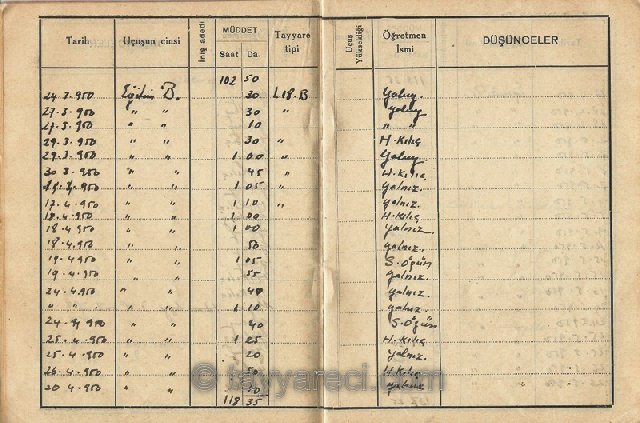 Tarih Uçuşun cinsi İniş adedi MÜDDET Saat Da. Tayyare tipi Uçuş Yüksekliği Öğretmen İsmi DÜŞÜNCELER
102 50
24-3-950 Eğitim B. 30 L18-B Yalnız
27-3-950 " " 30 " Yalnız
27-3-950 " " 10 " "
29-3-950 " " 30 " H-Kılıç
29-3-950 " " 1 00 " Yalnız
30-3-950 " " 45 " H-Kılıç
" " 1 05 " yalnız.
17-4-950 " " 1 10 " yalnız.
18-4-950 " " 1 00 H-Kılıç
18-4-950 " " 1 00 yalnız.
18-4-950 " " 50 yalnız.
19-4-950 " " 1 05 S-Öğün
19-4-950 " " 55 yalnız.
24-4-950 " " 40 yalnız.
" " " " 1 10 yalnız.
24-4-950 " " 40 S-Öğün
25-4-950 " " 1 25 H-Kılıç
25-4-950 " " 20 yalnız.
26-4-950 " " 50 H-Kılıç
" " yalnız
118 35
© tayyareci.com